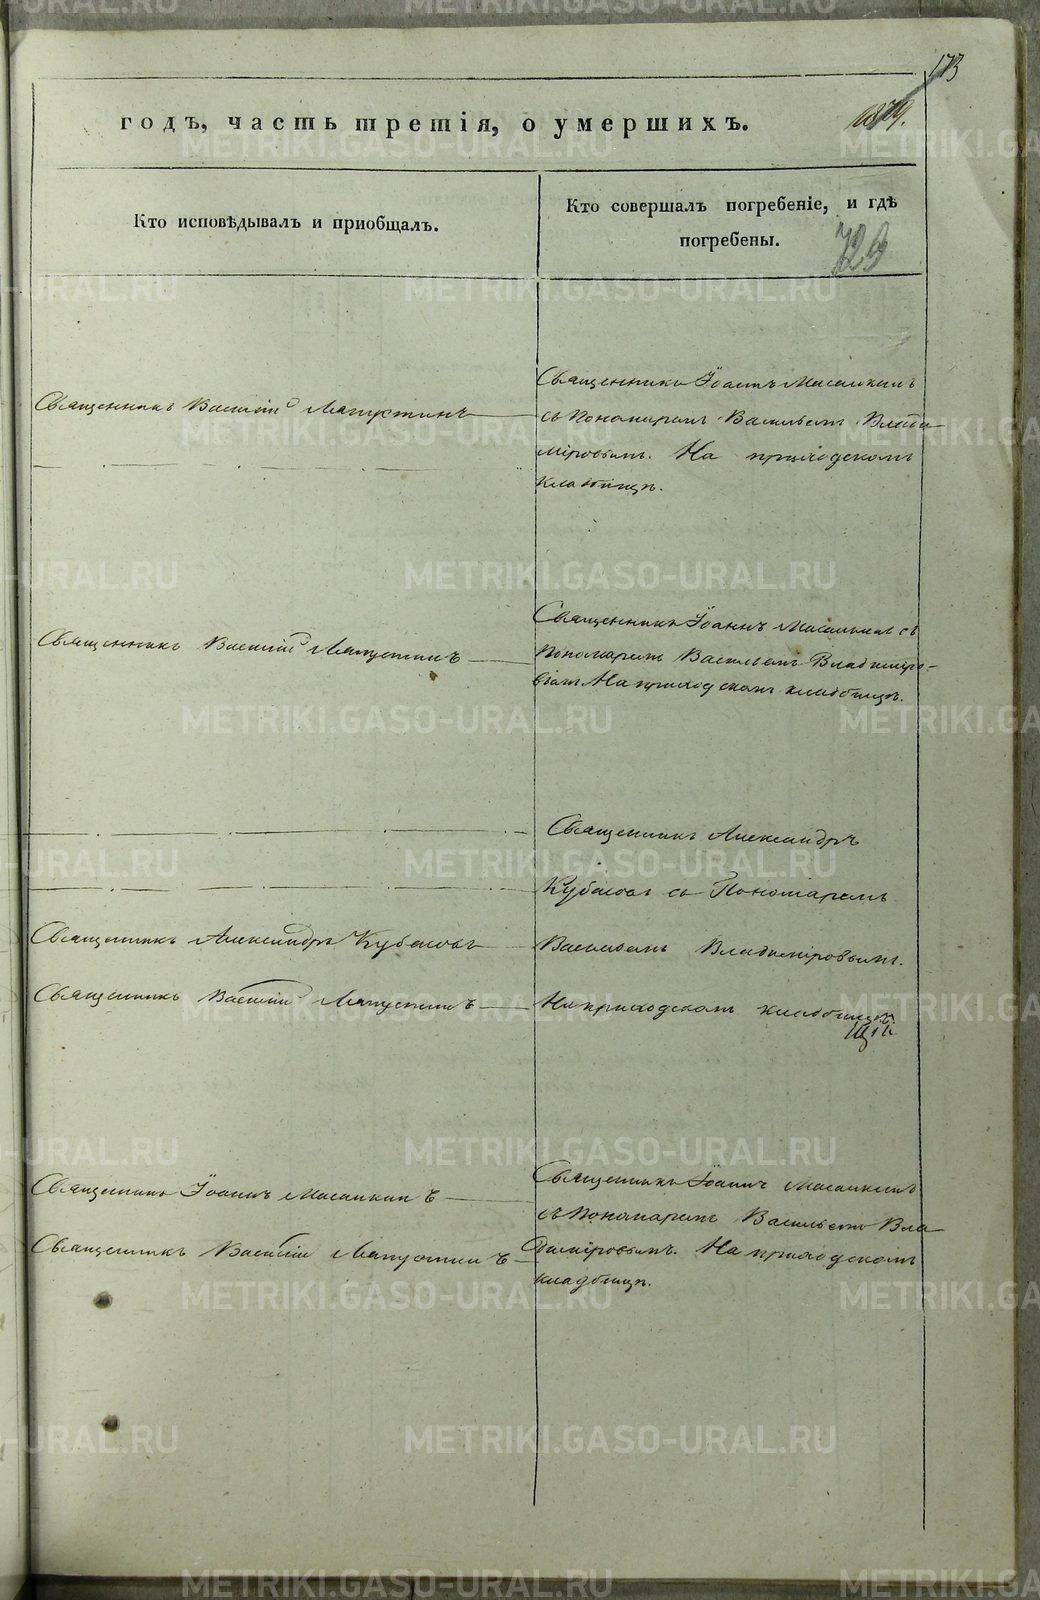 173
годъ, часть третія, о умершихъ.
Кто исповѣдывалъ и пріобщалъ.
Кто совершалъ погребеніе, и гдѣ
погребены.
729
Священникъ Василій Лапустинъ
Священникъ Іоаннъ
съ Пономаремъ Васильемъ Влади-
міровымъ. На приходскомъ
кладбищѣ.
Священникъ Василій Лапустинъ
Священникъ Іоаннъ съ
Пономаремъ Васильемъ Владиміро-
вымъ На приходскомъ кладбищѣ.
Священникъ Александръ
Кубасовъ съ Пономаремъ
Священникъ Александръ Кубасовъ
Васильемъ Владиміровымъ.
Священникъ Василій Лапустинъ
На приходскомъ кладбищѣ
Священникъ Іоаннъ
Священникъ Василій Лапустинъ
Священникъ Іоаннъ
съ Пономаремъ Васильемъ Вла-
диміровымъ. На приходскомъ
кладбищѣ.
METRIKI.GASO-URAL.RU